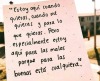 "Estoy aquí cuando
quieras, cuando me
quieras y para lo
que quieras. Pero
especialmente estoy
aquí para las malas
porque para las
buenas está cualquiera."